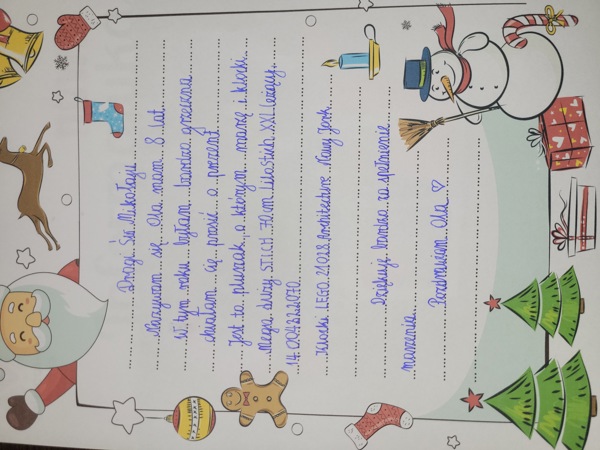 Drogi Św Mikołaju
Nazywam się Ola mam 8 lat.
W tym roku byłam bardzo grzeczna
chciałam cię prosić o prezent
Jest to pluszak o którym marzę i klocki
Mega duży STICH 70cm Lilo Stich XXL leżący,
14.00422.2070
Klocki LEGO 21028 Architecture Nowy Jork
Dziękuję bardzo za spełnienie
marzenia.
Pozdrawiam Ola ♡